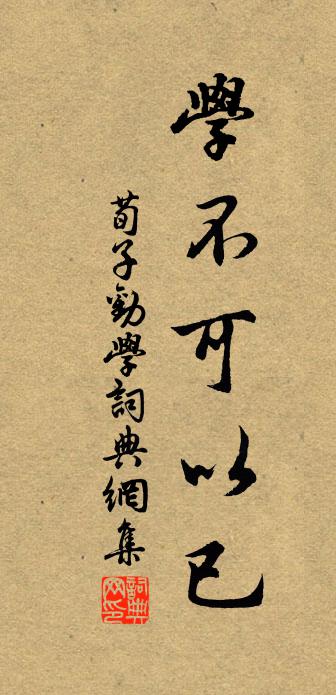 學不可以已
荀子勸學詞典網集
詞典網印